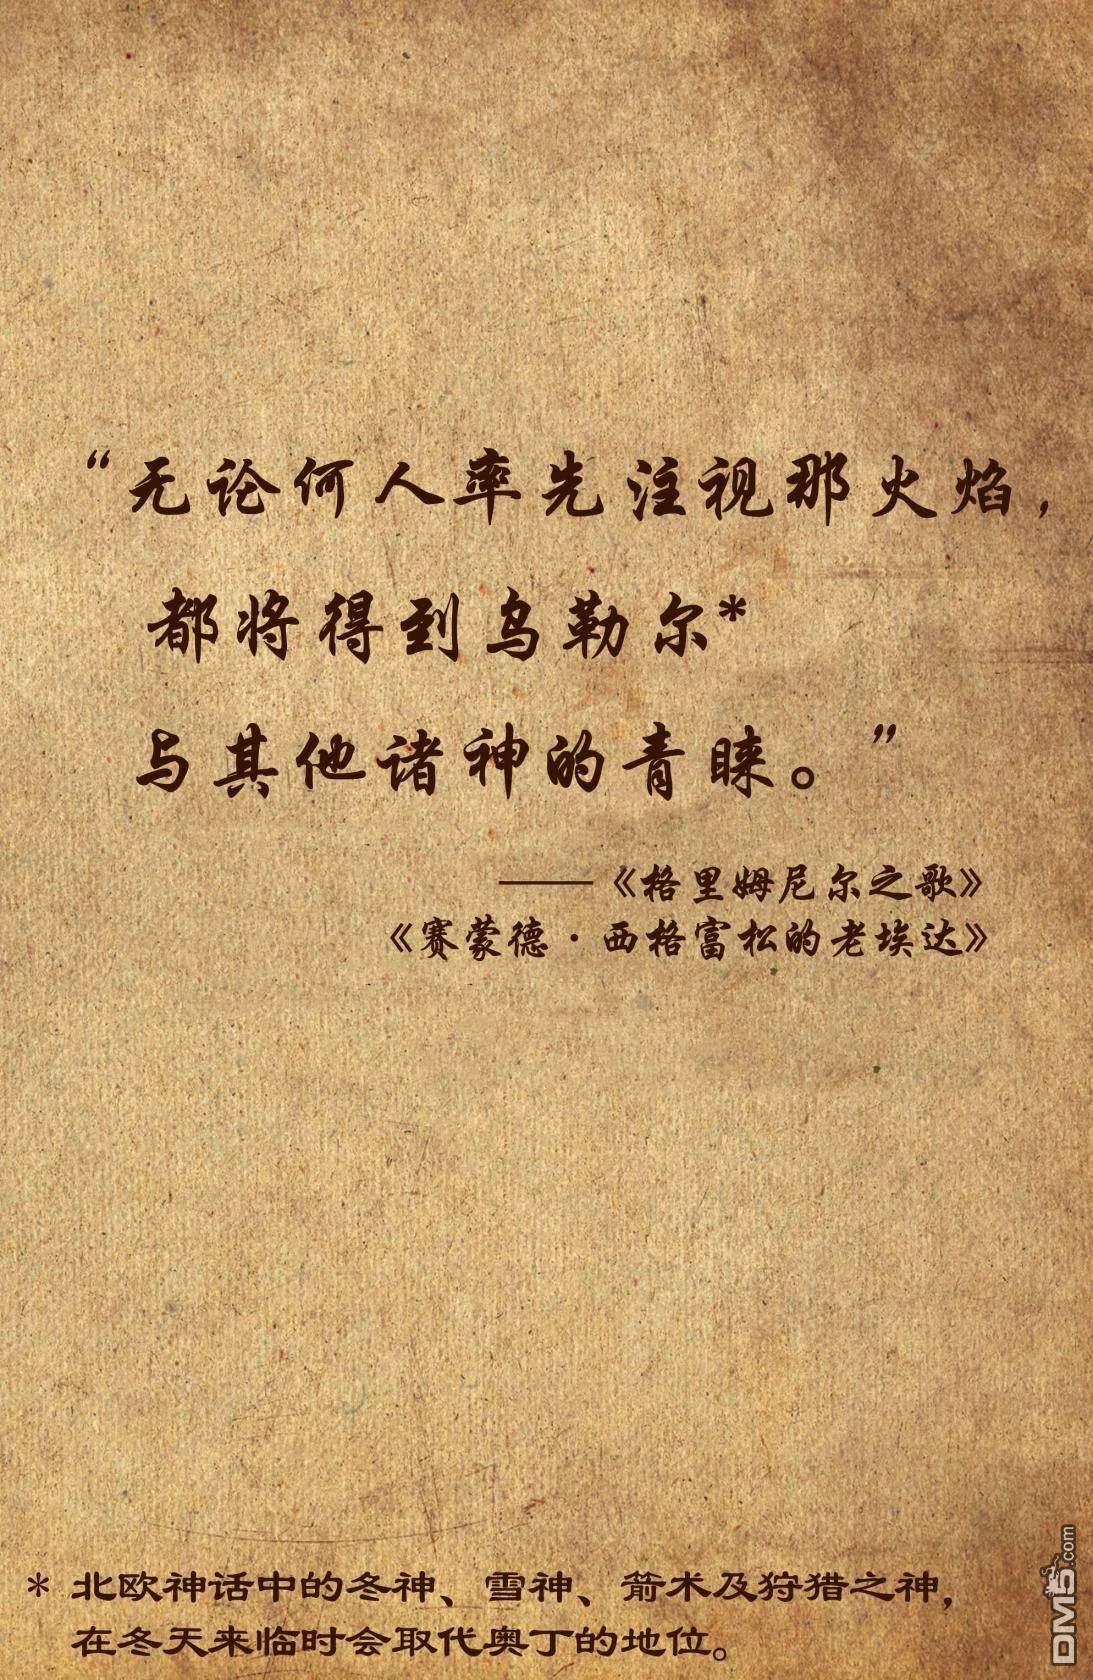 “无论何人率先注视那火焰，
都将得到乌勒尔*
与其他诸神的青睐。”
——《格里姆尼尔之歌》
《赛蒙德·西格富松的老埃达》
* 北欧神话中的冬神、雪神、箭术及狩猎之神，
在冬天来临时会取代奥丁的地位。
DM5.com